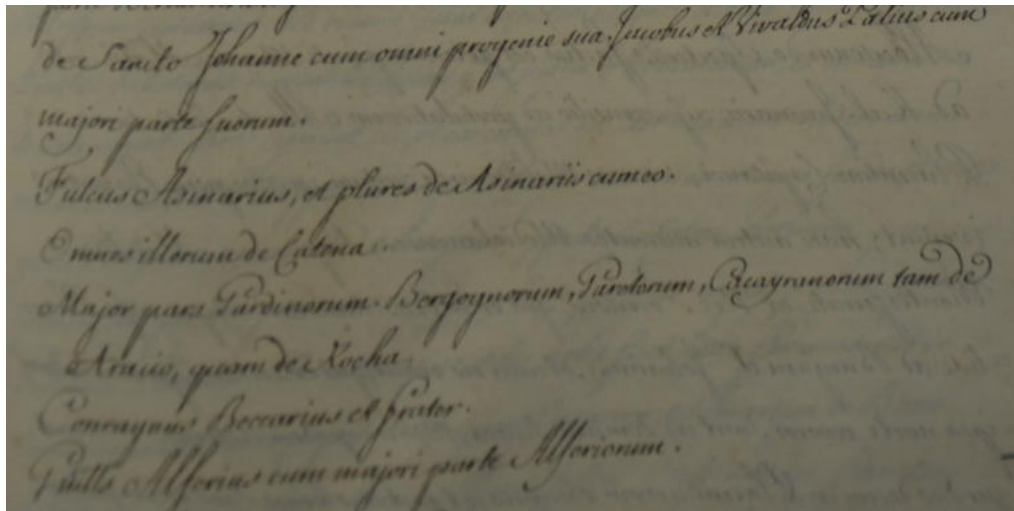 de Sancto Johanne cum omni progenie sua. Jacobus et Vivaldus Lalius cum
majori parte suorum.
Fulcus Asinarius, et plures de Asinariis cum eo.
Omnes illorum de Catena.
Major pars Pardinorum. Bergognorum, Parotorum, Cacayranorum tam de
quam de Rocha.
Conraynus Beccarius et frater.
Alferius cum majori parte Alferiorum.